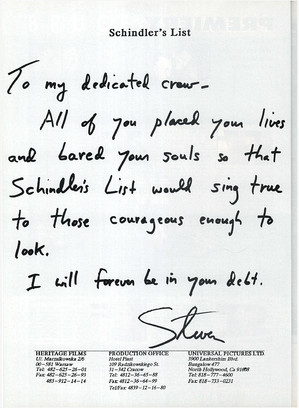 Schindler's List
To my dedicated crew-
All of you placed your lives
and bared your souls so that
Schindler's List would sing true
to those courageous enough to
look.
I will forever be in your debt.
Steven
HERITAGE FILMS
Ul. Marzalkowska 2/6
00-581 Warsaw
Tel: 482-625-26-01
Fax: 482-625-26-93
483-912-14-14
PRODUCTION OFFICE
Hotel Piast
109 Radzikowskiego St.
31-342 Cracow
Tel: 4812-36-65-88
Fax 4812-36-64-99
Tel/Fax: 4839-12-16-80
UNIVERSAL PICTURES LTD.
3900 Lankershim Blvd.
Bungalow 477
North Hollywood, Ca 91608
Tel: 818-777-4600
Fax: 818-733-0231